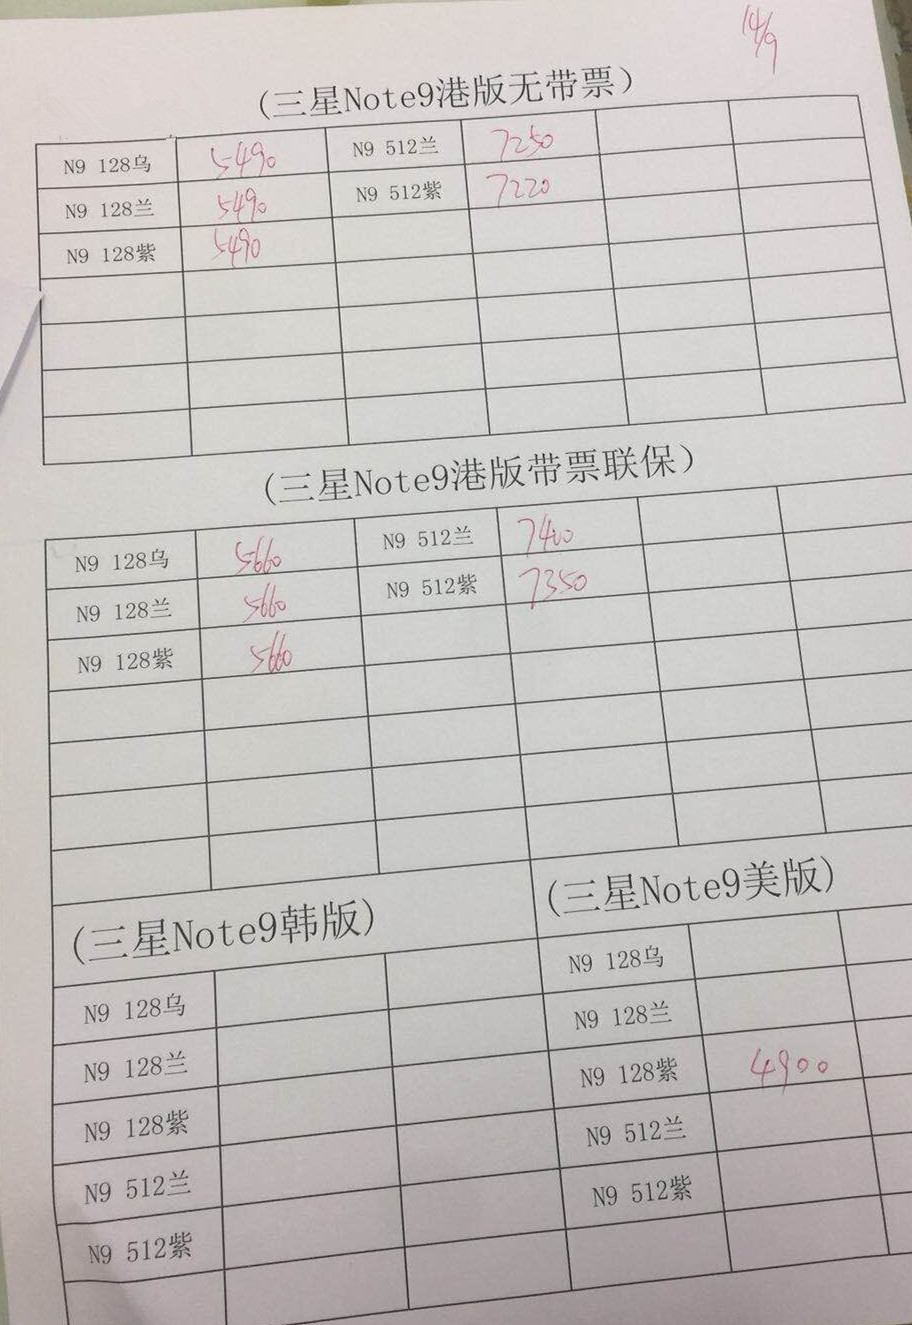 14/9
(三星Note9港版无带票)
N9 128乌 5490 N9 512兰 7250
N9 128兰 5490 N9 512紫 7220
N9 128紫 5490
(三星Note9港版带票联保)
N9 128乌 5660 N9 512兰 7400
N9 128兰 5660 N9 512紫 7350
N9 128紫 5660
(三星Note9韩版) (三星Note9美版)
N9 128乌 N9 128乌
N9 128兰 N9 128兰
N9 128紫 N9 128紫 4900
N9 512兰 N9 512兰
N9 512紫 N9 512紫